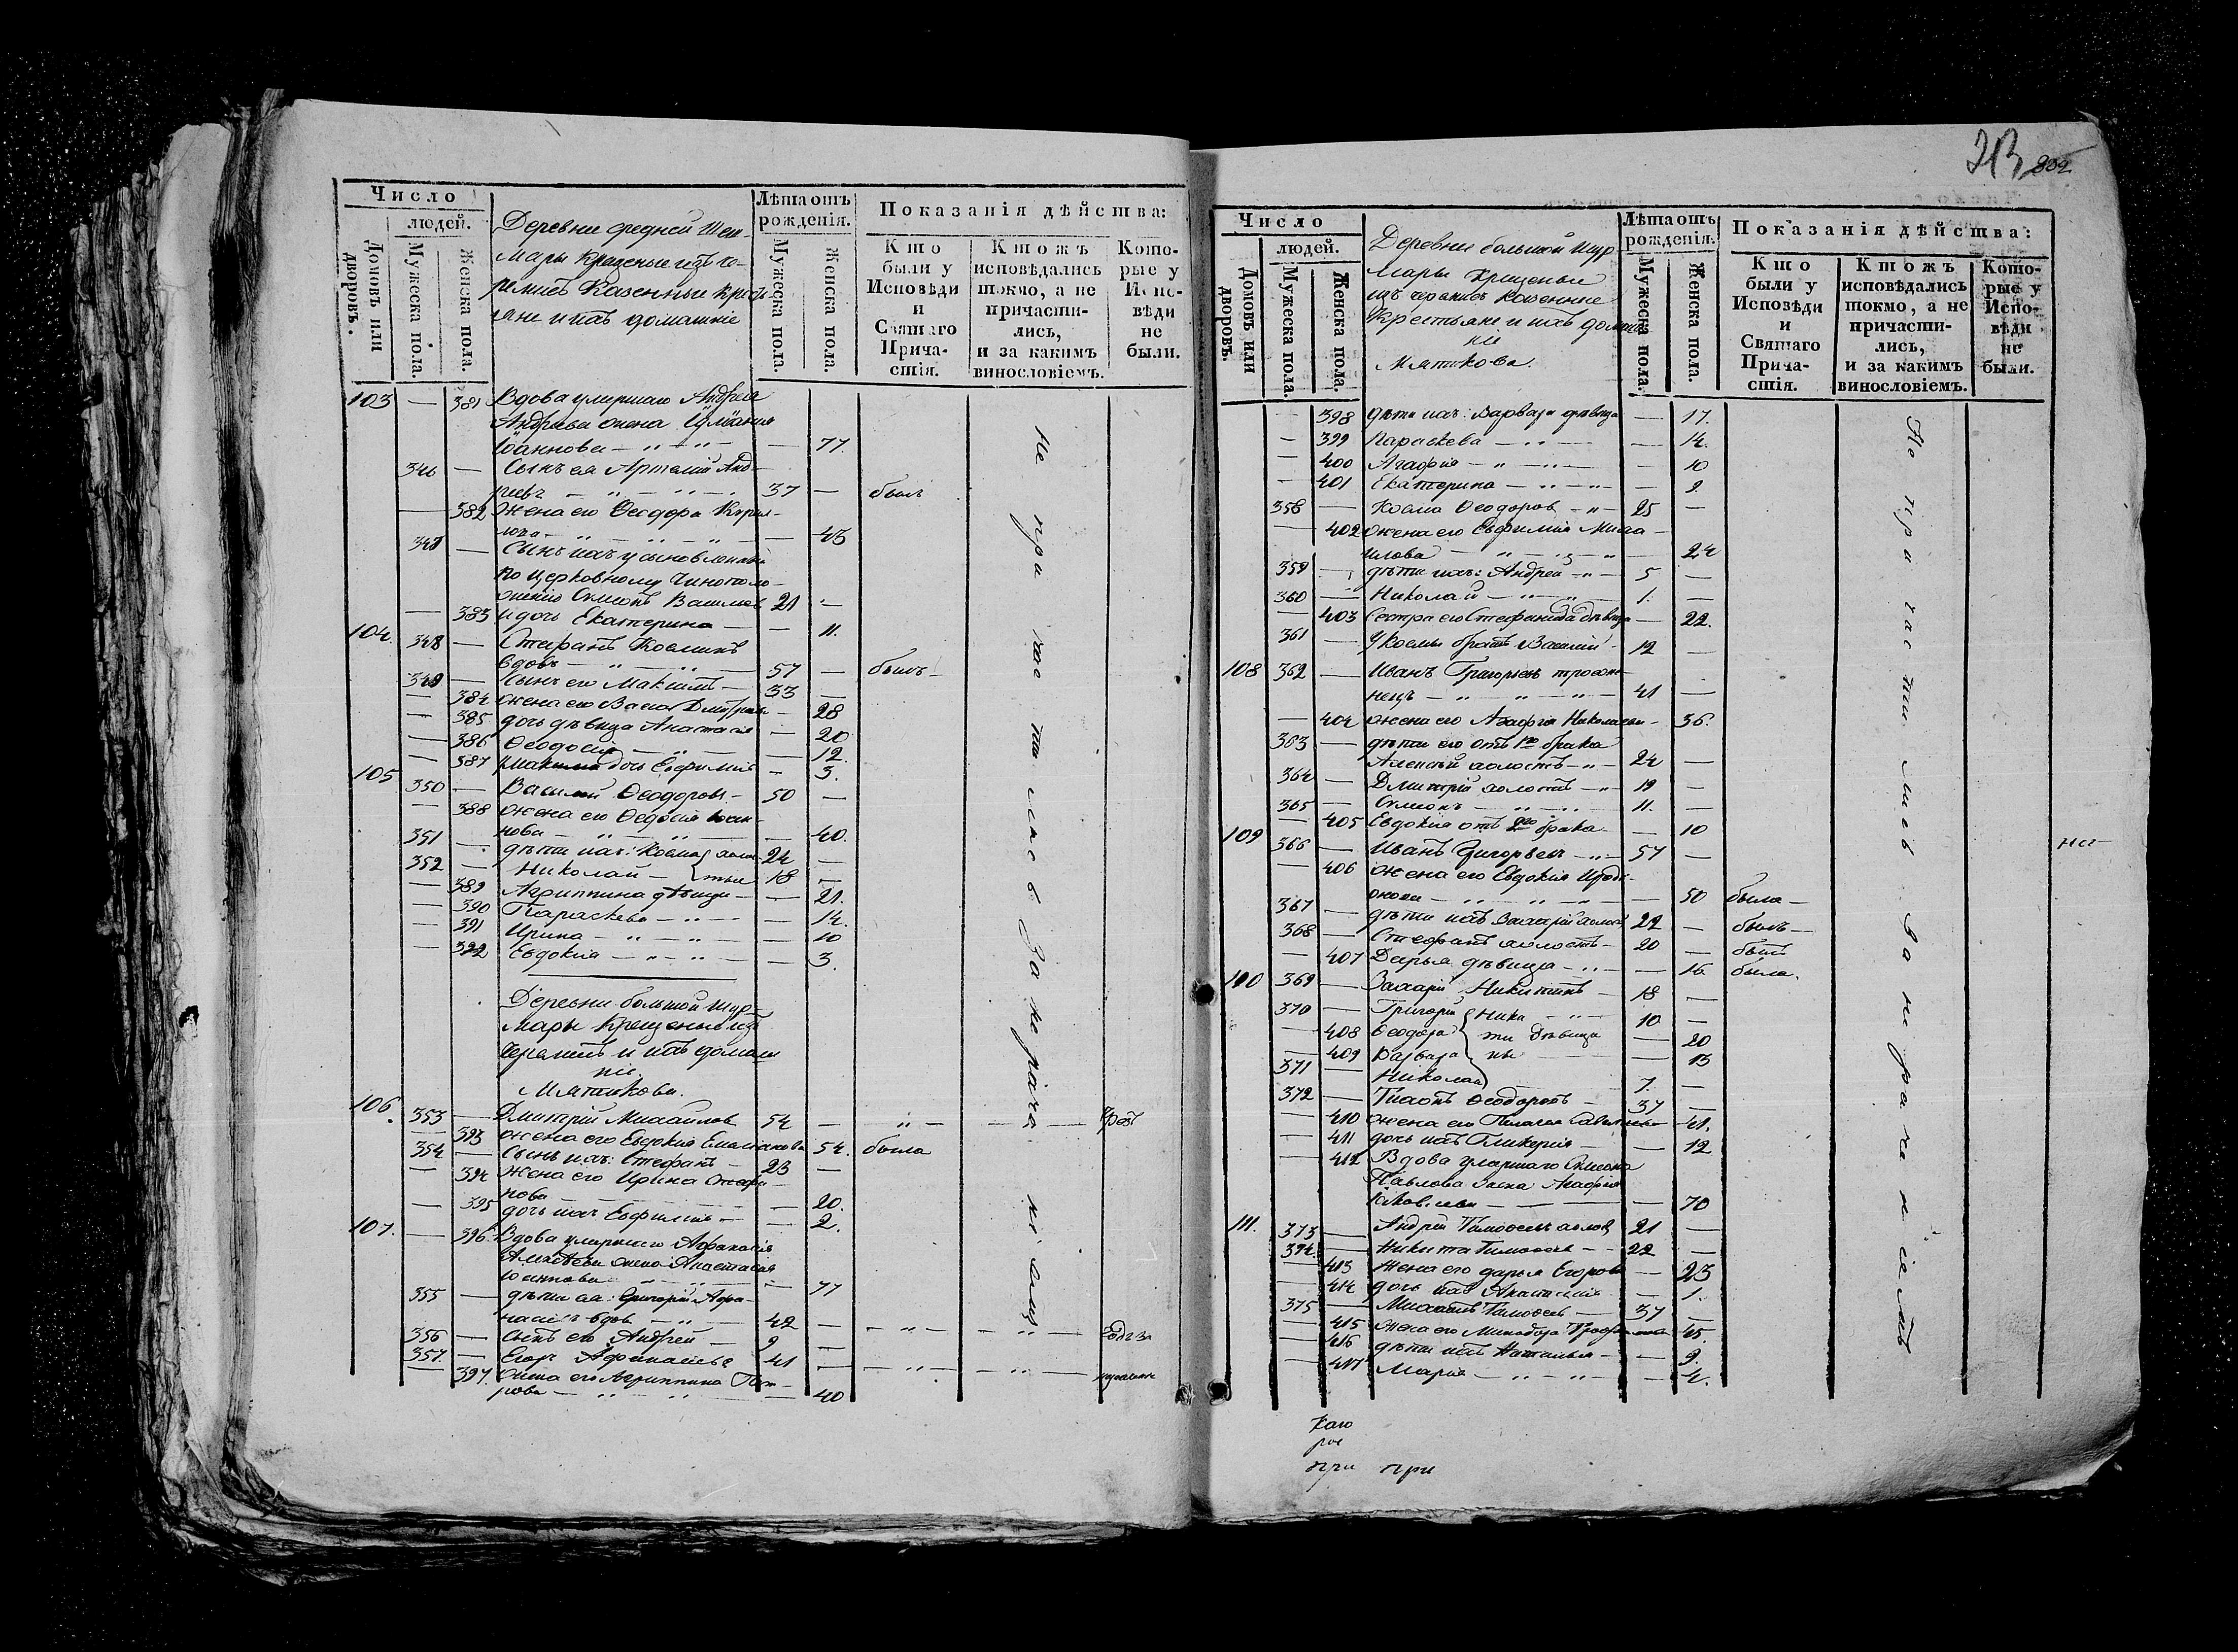 Число
людей.
Домовъ или дворовъ.
Мужеска пола.
Женска пола.
Деревни средней
Мары Крещеные изъ че-
ремисъ Казенные кресть-
яне и ихъ домашніе
Лѣта отъ рожденія.
Мужеска пола.
Женска пола.
Показанія дѣйства:
Кто были у Исповѣди и Святаго Прича-стія.
Ктожъ исповѣдались токмо, а не причасти-лись, и за какимъ винословіемъ.
Кото-рые у Испо-вѣди не были.
103 — 381 Вдова умершаго Андрея
Андреева жена
Іоаннова — 77.
346 — Сынъ ея Артемій Анд-
реевъ — 37 — былъ
— 382 Жена его Ѳеодора Кирил-
лова — 45
— Сынъ ихъ усыновленный
по церковному чинополо-
женію Симеонъ Васильев 21 —
— 383 и дочь Екатерина — — 11.
104. 348 — Стефанъ Косминъ
вдовъ — 57 — былъ
349 — Сынъ его Максимъ — 33 —
— 384 жена его Васса Дмитріева — 28
— 385 дочь дѣвица Анастасія — 20
— 386 Ѳеодосія — 12.
— 387 Максима дочь Евфимія — 3.
105 350 — Василій Ѳеодоровъ — 50 —
— 388 жена его Ѳедосія Іоан-
нова — 40.
351 — дѣти ихъ: Косма холо- 24 —
352 — Николай — тые 18 —
— 389 Агриппина дѣвица — — 21.
— 390 Параскева — — 14.
— 391 Ирина — — 10
— 392 Евдокія — — 3.
Деревни большой Шур-
Мары Крещеные изъ
Черемисъ и ихъ домаш
ніе.
Мятикова.
106. 353 — Дмитрій Михайловъ 54 —
— 393 жена его Евдокія Емелианова 54. была
354 — Сынъ ихъ: Стефанъ — 23 —
— 394 Жена его Ирина Стефа-
нова — 20.
— 395 дочь ихъ Евфимія — — 2.
107. — 396. Вдова умершаго Афанасія
Алексѣева жена Анастасія
Іоаннова — 77
355 — дѣти ея: Григорій Афа-
насіевъ вдовъ — 42 —
356 — сынъ его Андрей — 9 —
357. — Егоръ Афанасьевъ 41 —
— 397. жена его Агриппина Пет-
рова — 40
Не при час ти лись За не раче ні емъ
213 802
Число
людей.
Домовъ или дворовъ.
Мужеска пола.
Женска пола.
Деревни большой Шур
Мары Крещеные
изъ черемисъ Казенные
Крестьяне и ихъ домаш
ніе
Мятикова.
Лѣта отъ рожденія.
Мужеска пола.
Женска пола.
Показанія дѣйства:
Кто были у Исповѣди и Святаго Прича-стія.
Ктожъ исповѣдались токмо, а не причасти-лись, и за какимъ винословіемъ.
Кото-рые у Испо-вѣди не были.
— 398 дѣти ихъ: Варвара дѣвица — 17.
— 399 Параскева — — 14.
— 400 Агафія — — 10
— 401 Екатерина — — 2.
358 — Косма Ѳеодоровъ — 25 —
— 402 жена его Евфимія Миха-
илова — 24
359 — дѣти ихъ: Андрей — 5 —
360 — Николай — 1. —
— 403 Сестра его Стефанида дѣвица — 22.
361 — У Космы братъ Василій — 12 —
108 362 — Иванъ Григорьевъ троеже-
нецъ — 41 —
— 404 жена его Агафія Николаева — 36.
363 — дѣти его отъ 1го брака
Алексѣй холостъ — 24 —
364 — Дмитрій холостъ — 19 —
365 — Симеонъ — 11. —
— 405 Евдокія отъ 2го брака — — 10
109 366 — Иванъ Григорьевъ — 57 —
— 406 жена его Евдокія Ироді-
онова — 50 была —
367 — дѣти ихъ Захарій холост 22 — былъ —
368 — Стефанъ холостъ — 20 — былъ
— 407 Дарья дѣвица — — 16 была.
110 369 — Захарій Никитинъ — 18 —
370 — Григорій Ники — 10 —
— 408 Ѳеодора ти дѣвица — 20
— 409 Варвара ны — 13
371 — Николай — 7. —
372 — Тихонъ Ѳеодоровъ — 37 —
— 410 жена его Пелагея Савельева — 41.
— 411 дочь ихъ Гликерія — — 12
— 412 Вдова умершаго Симеона
Павлова жена Агафія
Яковлева — — 70
111. 373 — Андрей Тимоѳеевъ холос 21 —
374. — Никита Тимоѳеевъ — 22 —
— 413 Жена его Дарья Егорова — 23
— 414 дочь ихъ Анастасія — 1.
375 — Михаилъ Тимоѳеевъ — 37 —
— 415 жена его Минодора — 45.
— 416 дѣти ихъ Наталья — — 9.
— 417 Марія — — 4.
Не при час ти лись За не ра че ні емъ
на
рое
при при